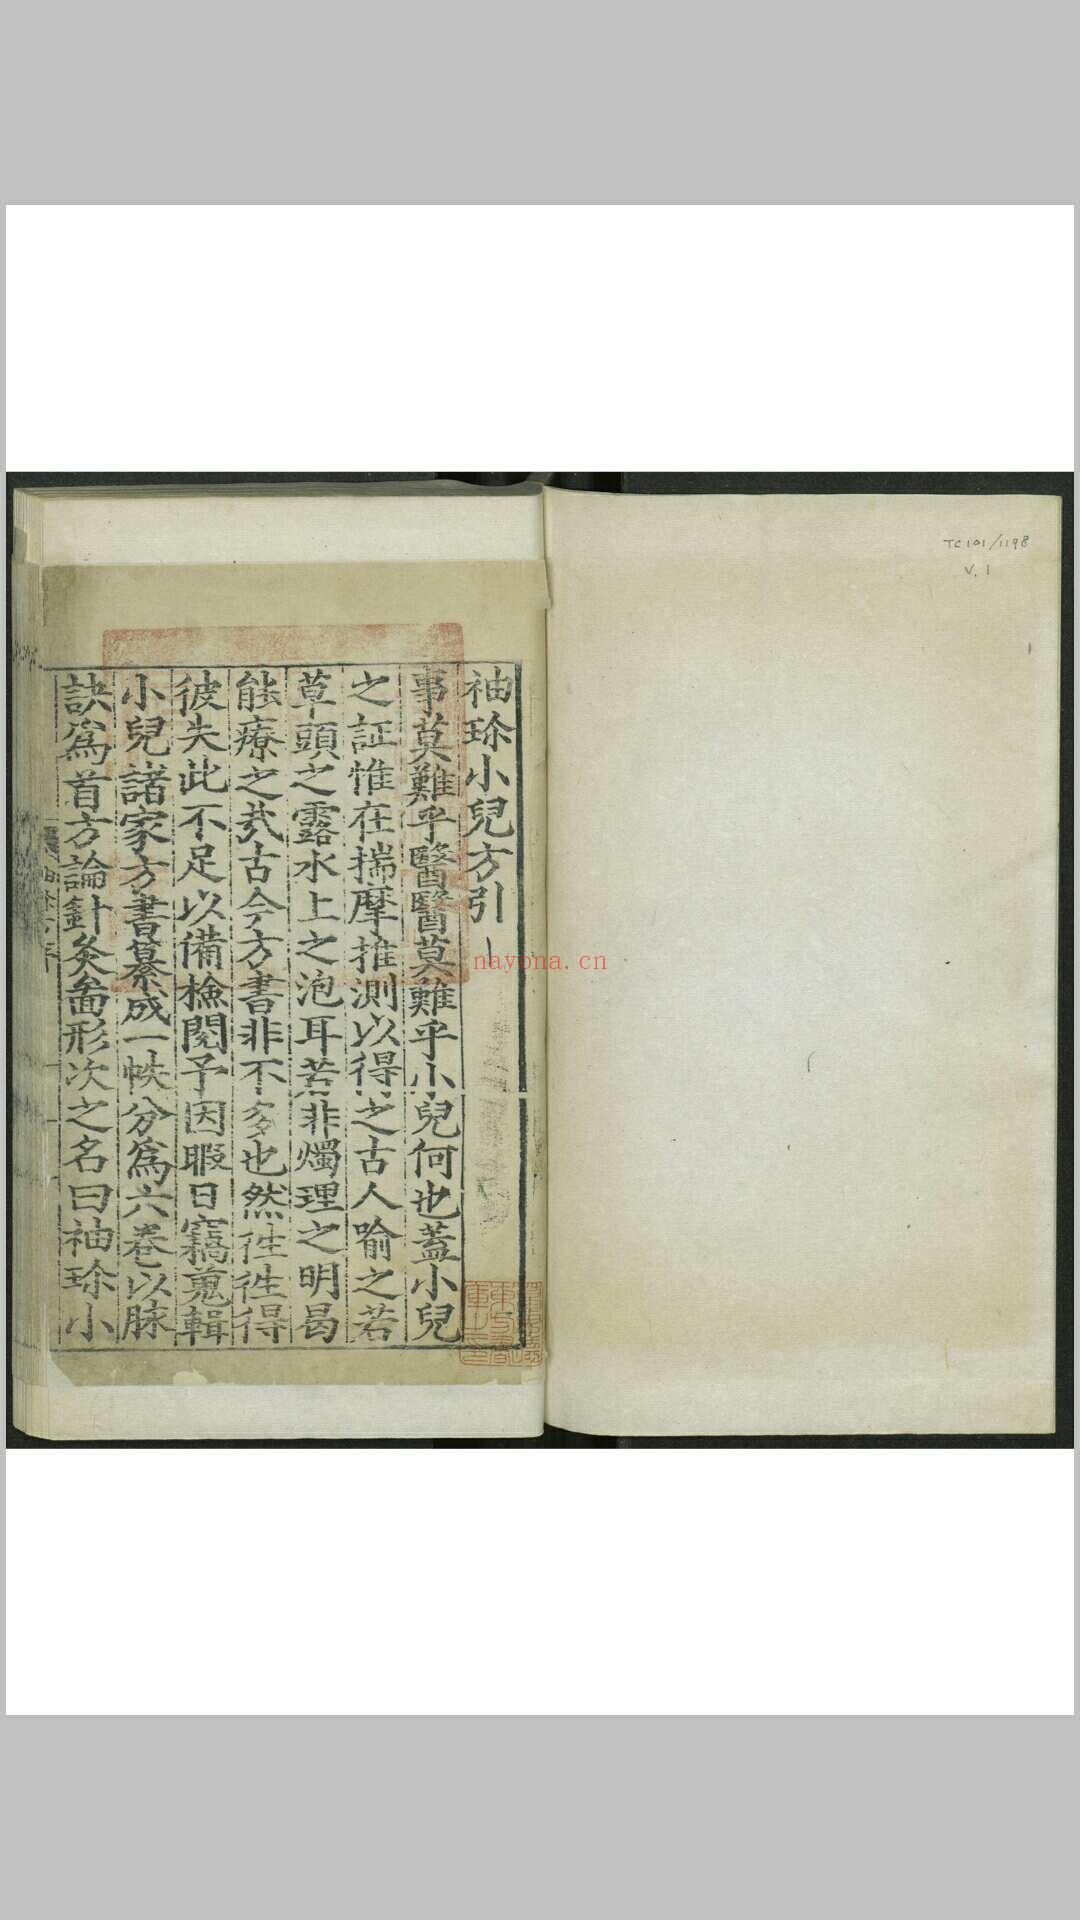 TC101/1198
V.1
袖珎小兒方引
事莫難乎醫醫莫難乎小兒何也蓋小兒
之証惟在揣摩推測以得之古人喻之若
草頭之露水上之泡耳若非燭理之明曷
能療之㦲古今方書非不多也然徃徃得
彼失此不足以備檢閱予因暇日竊蒐輯
小兒諸家方書纂成一帙分爲六卷以脉
訣爲首方論針灸啚形次之名曰袖珎小
nayona.cn